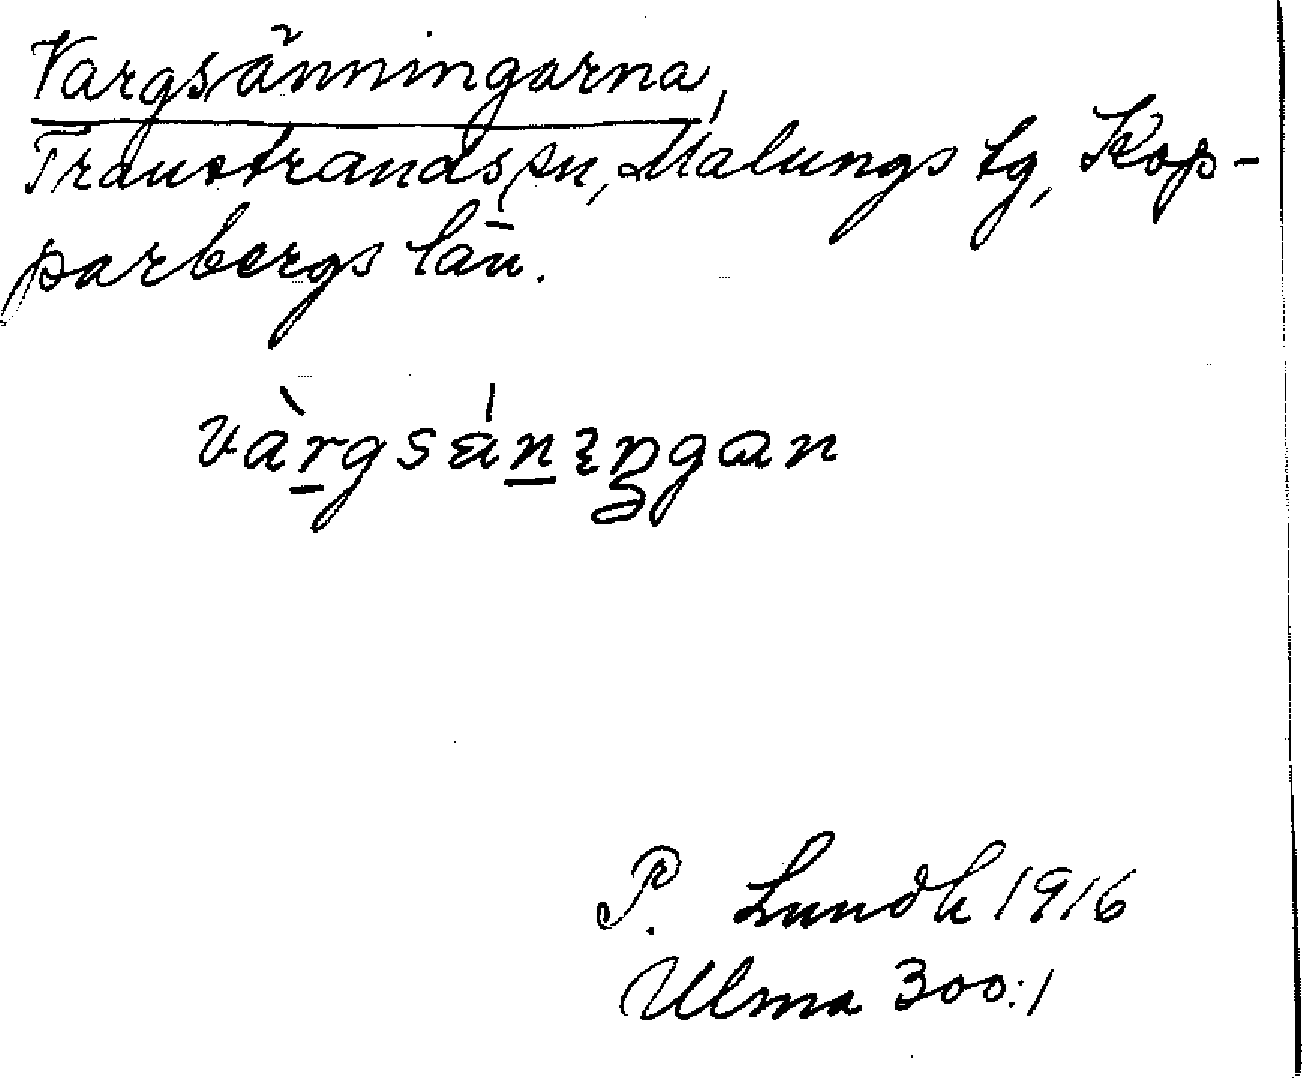 Vargsänningarna,
Transtrands sn, Malungs tg, Kop-
parbergs län.
vàrgsǽnıŋgan
P. Lundh 1916
Ulma 300:1